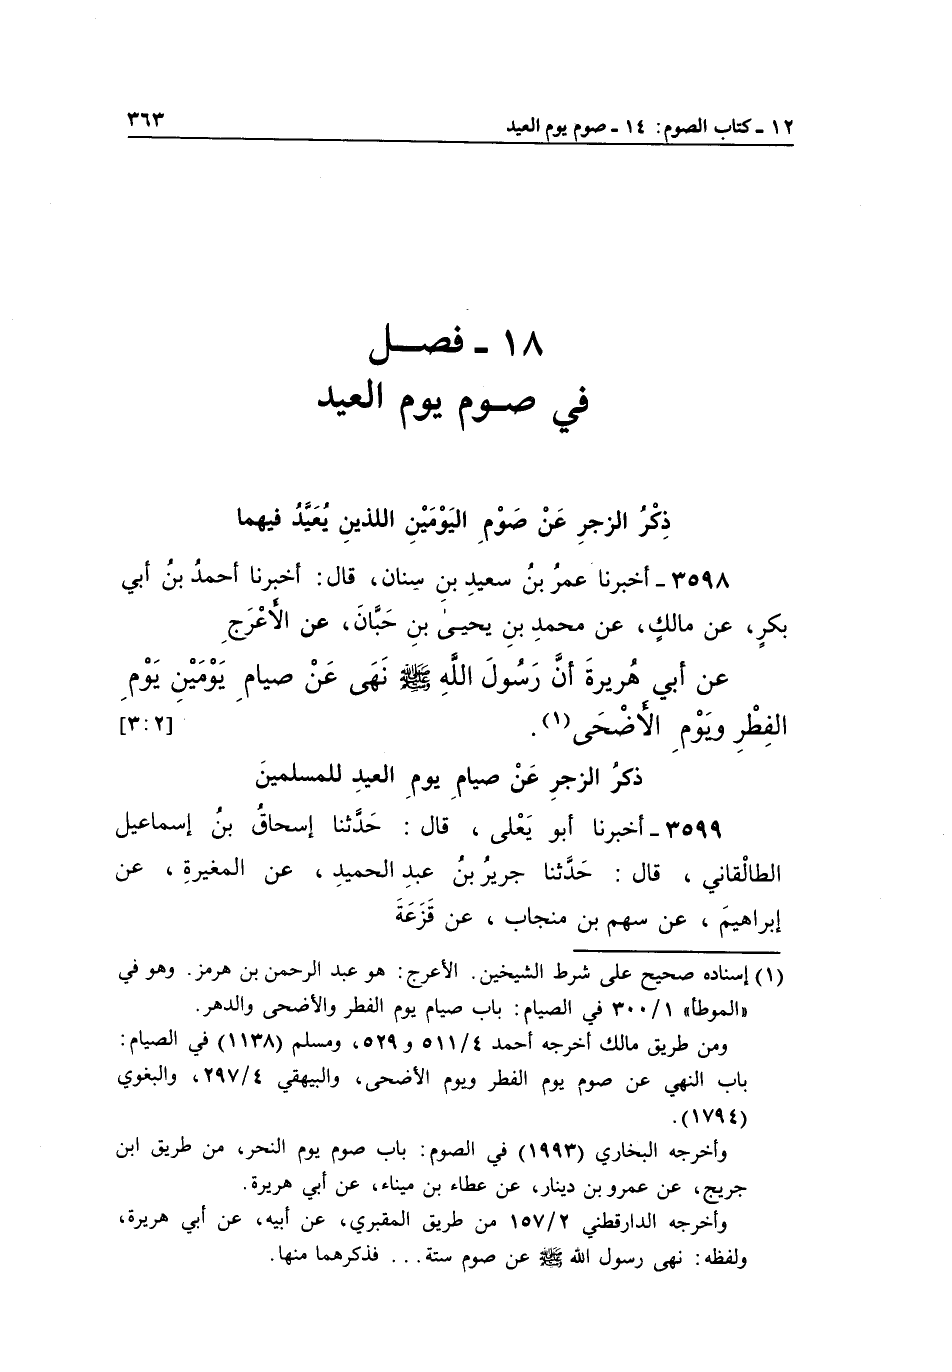 ١٢ ـ كتاب الصوم: ١٤ ـ صوم يوم العيد ٣٦٣
١٨ ـ فصـــل
في صـوم يوم العيد
ذِكْرُ الزجرِ عَنْ صَوْمِ اليَوْمَيْنِ اللذينِ يُعَيَّدُ فيهما
٣٥٩٨ ـ أخبرنا عمرُ بنُ سعيدِ بنِ سِنان، قال: أخبرنا أحمدُ بنُ أبي
بكرٍ، عن مالكٍ، عن محمدِ بنِ يحيىٰ بنِ حَبَّانَ، عن الأَعْرَجِ
عن أبي هُريرةَ أنَّ رَسُولَ اللَّهِ ﷺ نَهَى عَنْ صيامِ يَوْمَيْنِ يَوْمِ
الفِطْرِ ويَوْمِ الأَضْحَى(١). [٣:٢]
ذكرُ الزجرِ عَنْ صيامِ يومِ العيدِ للمسلمينَ
٣٥٩٩ ـ أخبرنا أبو يَعْلى ، قال : حَدَّثنا إسحاقُ بنُ إسماعيل
الطالْقاني ، قال : حَدَّثنا جريرُ بنُ عبدِ الحميدِ ، عن المغيرةِ ، عن
إبراهيمَ ، عن سهم بن منجاب ، عن قَزَعَةَ
(١) إسناده صحيح على شرط الشيخين. الأعرج: هو عبد الرحمن بن هرمز. وهو في
«الموطأ» ٣٠٠/١ في الصيام: باب صيام يوم الفطر والأضحى والدهر.
ومن طريق مالك أخرجه أحمد ٥١١/٤ و ٥٢٩، ومسلم (١١٣٨) في الصيام:
باب النهي عن صوم يوم الفطر ويوم الأضحى، والبيهقي ٢٩٧/٤، والبغوي
(١٧٩٤).
وأخرجه البخاري (١٩٩٣) في الصوم: باب صوم يوم النحر، من طريق ابن
جريج، عن عمرو بن دينار، عن عطاء بن ميناء، عن أبي هريرة.
وأخرجه الدارقطني ١٥٧/٢ من طريق المقبري، عن أبيه، عن أبي هريرة،
ولفظه: نهى رسول الله ﷺ عن صوم ستة... فذكرهما منها.